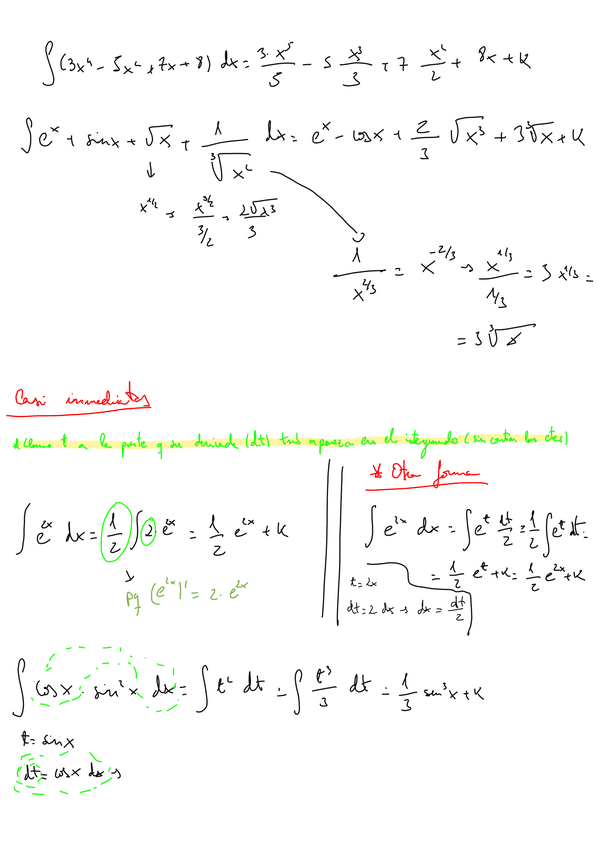 ∫(3x⁴ - 5x² + 7x + 8) dx = 3·x⁵/5 - 5 x³/3 + 7 x²/2 + 8x + K
∫ eˣ + sinx + √x + 1/∛x² dx = eˣ - cosx + 2/3 √x³ + 3∛x + K
↓
x^1/2 → x^3/2 / 3/2 → 2√x³/3
1/x^2/3 = x^-2/3 → x^1/3 / 1/3 = 3 x^1/3 =
= 3∛x
Casi inmediatas
*Llamo t a la parte q su derivada (dt) tmb aparezca en el integrando (sin contar los ctes)
* Otra forma
∫ e²ˣ dx = 1/2 ∫ 2·e²ˣ = 1/2 e²ˣ + K
↓
pq (e²ˣ)' = 2·e²ˣ
∫ e²ˣ dx = ∫ eᵗ dt/2 = 1/2 ∫ eᵗ dt =
= 1/2 eᵗ + K = 1/2 e²ˣ + K
t = 2x
dt = 2 dx → dx = dt/2
∫ cosx · sin²x dx = ∫ t² dt = ∫ t³/3 dt = 1/3 sin³x + K
t = sinx
dt = cosx dx →